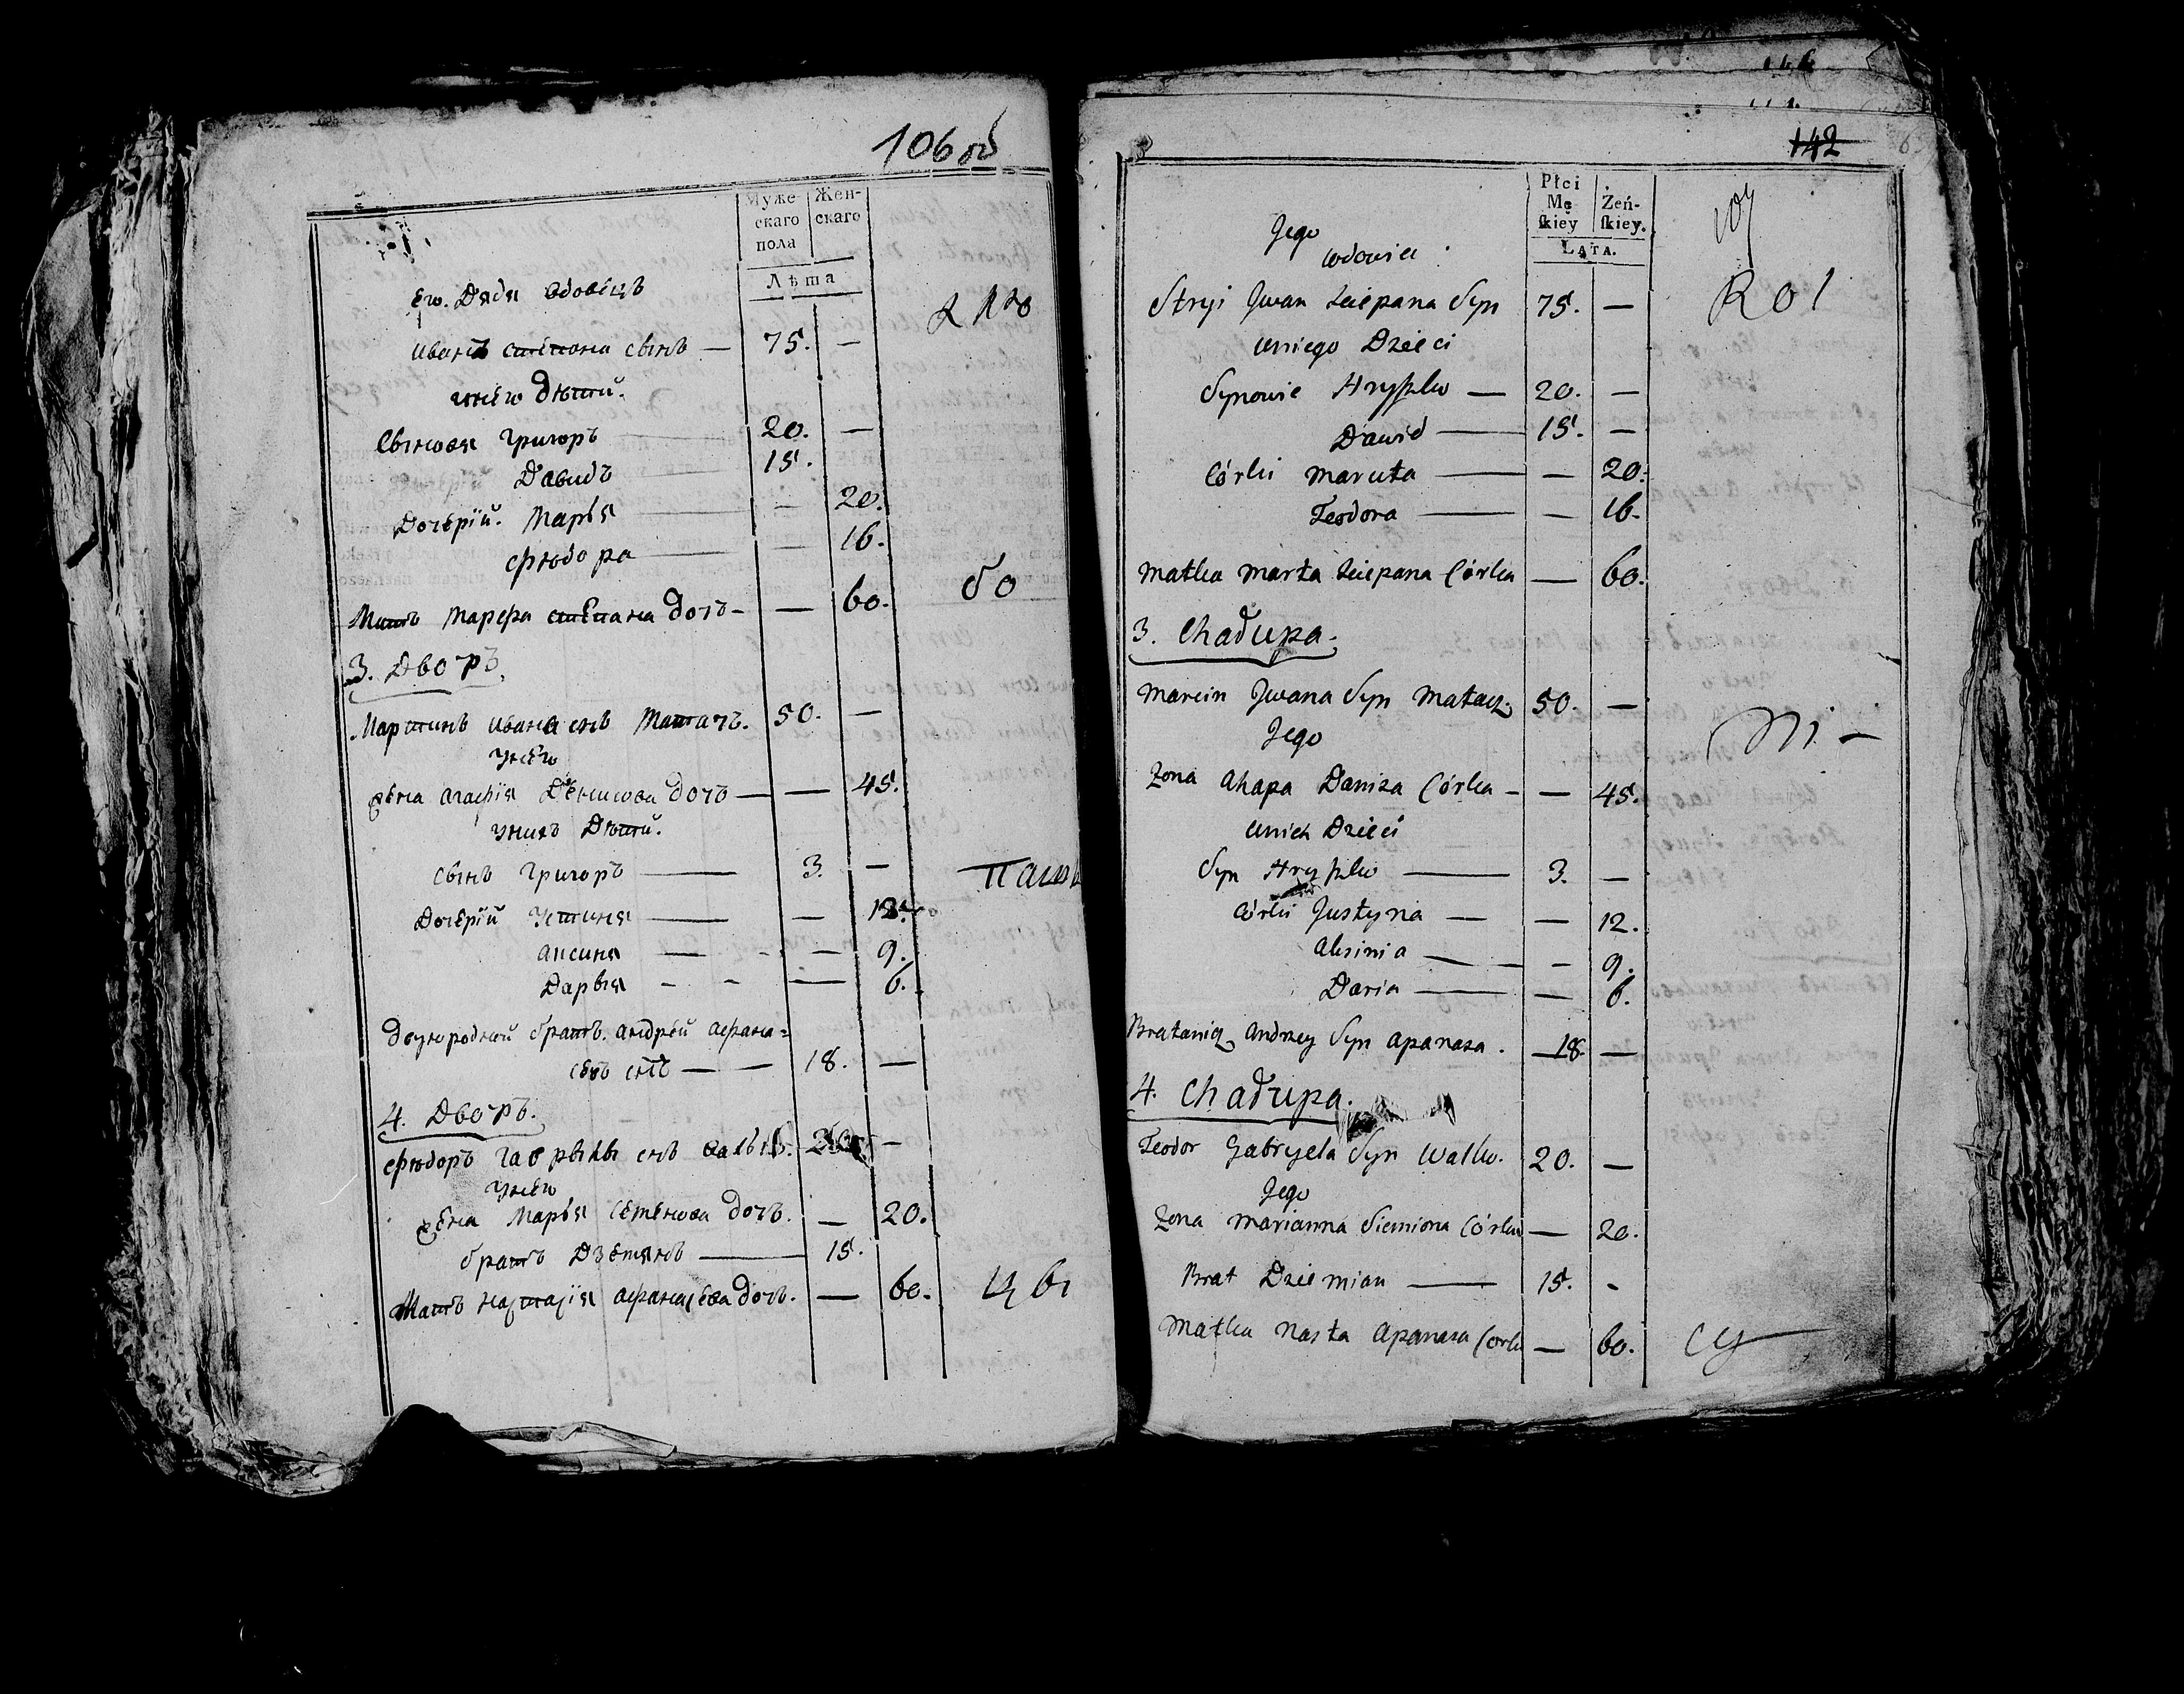 106 об
Муже-
скаго
пола
Жен-
скаго
Лѣта
его. Дядя вдовецъ
иванъ степана сынъ — 75. —
унего дѣтй.
Сынове григоръ 20. —
Давидъ 15.
Дочерїй. Марья — 20.
Ѳюдора — 16.
Мать Марѳа степана дочь — — 60.
бо
3. Дворъ.
Мартинъ ивана снъ Матачъ. 50. —
унего
жена агафїя Денисова дочь — — 45.
унихъ Дѣтй.
сынъ григоръ — 3. —
Дочерїй Устиня — — 12.
аксиня — — 9.
Дарья — — 6.
двуюродный братъ. андрей афана=
севъ снъ — 18. —
4. Дворъ.
Ѳюдоръ гаврылы снъ — 20 —
унего
жена Марья Семенова дочь. — 20.
братъ Дземянъ — 15.
Мать настасїя афанасьева дочь. — 60.
цы
142
Płci
Mę
skiey
Żeń-
skiey.
LATA.
107
Jego
wdowiec
Stryi Jwan Sciepana Syn 75. —
uniego Dzieci
Synowie Hryszko — 20. —
Dawid — 15. —
Córki Maruta — — 20.
Teodora — — 16.
Matka Marta Sciepana Córka — 60.
3. Chałupa.
Marcin Jwana Syn Matacz. 50. —
Jego
Zona Ahapa Daniza Córka — — 45.
unich Dzieci
Syn Hryszko — 3. —
Córki Justyna — — 12.
Aksinia — — 9.
Daria — — 6.
Bratanicz Andrzey Syn Apanasa. — 18. —
4. Chałupa.
Teodor Gabryela Syn Walko. 20. —
Jego
Zona Marianna Siemiona Córka — 20.
Brat Dziemian — 15. -
Matka Nasta Apanasa Corka — 60.